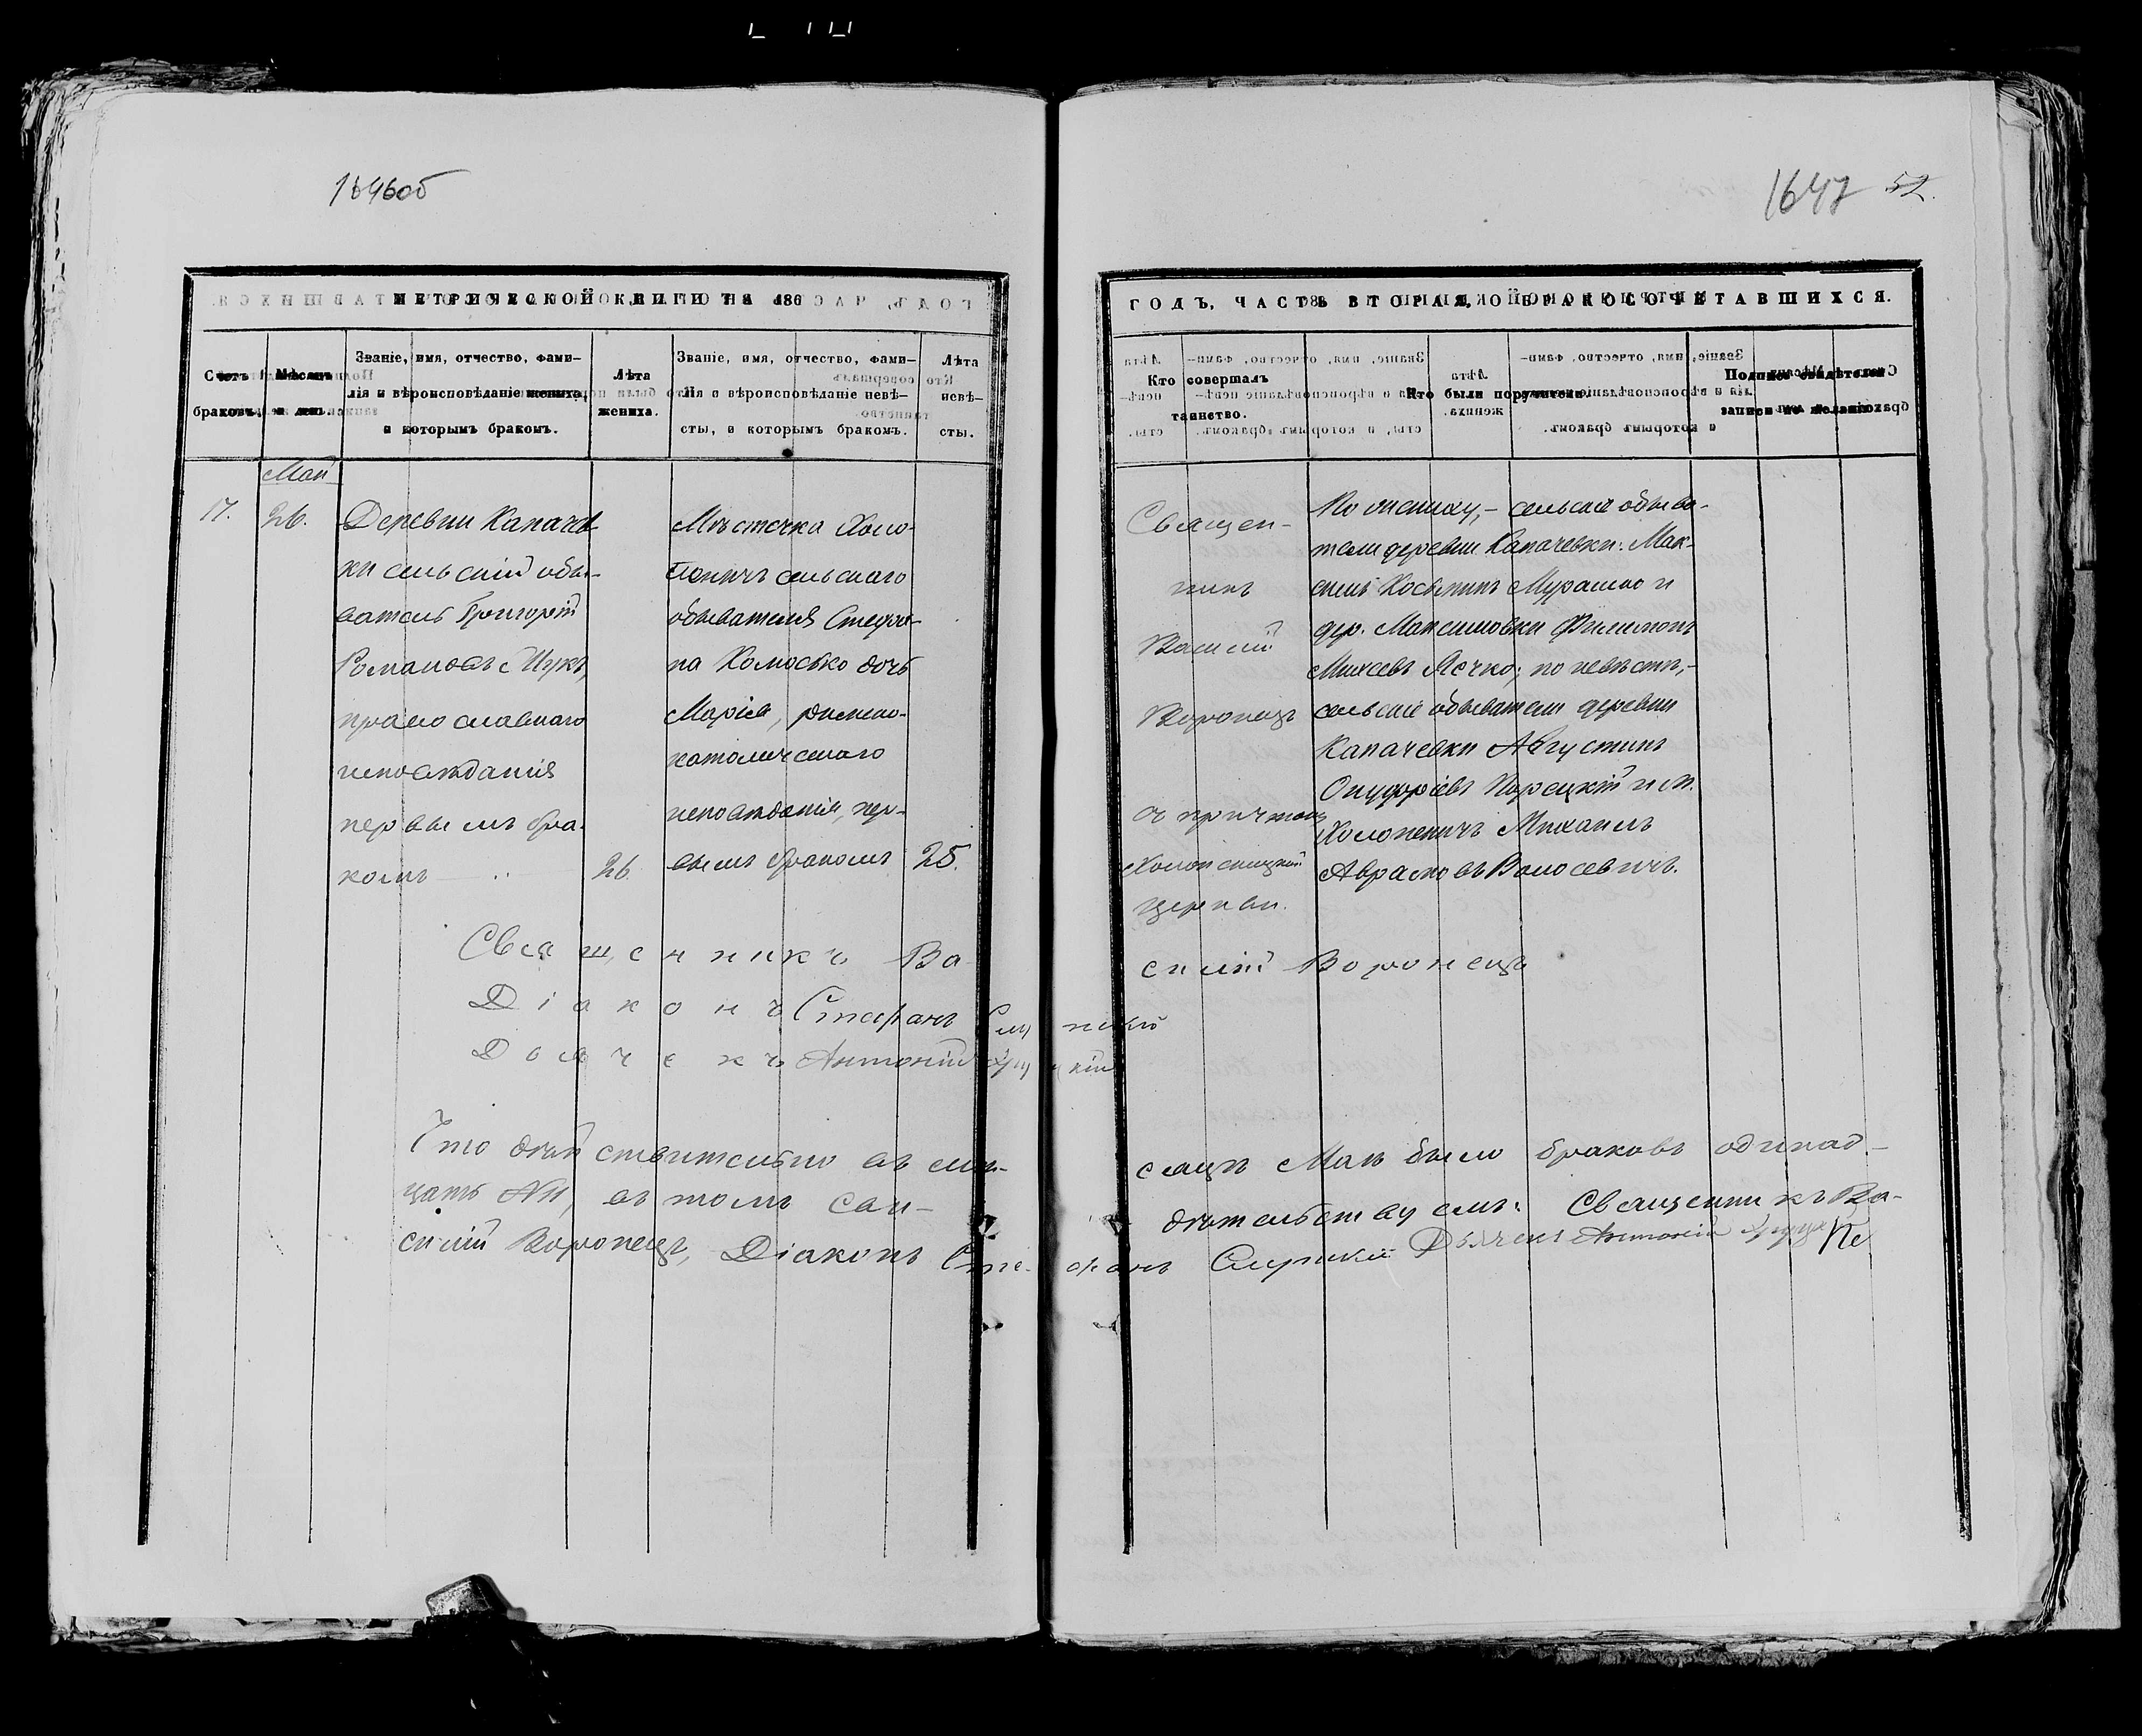 1646об
1647 52.
МЕТРИЧЕСКОЙ КНИГИ НА 186
ГОДЪ, ЧАСТЬ ВТОРАЯ, О БРАКОСОЧЕТАВШИХСЯ.
Счетъ браковъ.
Мѣсяцъ и день.
Званіе, имя, отчество, фами-
лія и вѣроисповѣданіе жениха,
и которымъ бракомъ.
Лѣта
жениха.
Званіе, имя, отчество, фами-
лія и вѣроисповѣданіе невѣ-
сты, и которымъ бракомъ.
Лѣта
невѣ-
сты.
Кто совершалъ
таинство.
Кто были поручители.
Подписи свидѣтелей
записи по желанію.
Май
17.
26.
Деревни Капачев-
ки сельскій обы-
ватель Григорій
Романовъ Шукъ,
православнаго
исповѣданія
первымъ бра-
комъ
26.
Мѣстечка Холо-
пеничъ сельскаго
обывателя Стефа-
на Хомосько дочь
Марія, римско-
католическаго
исповѣданія, пер-
вымъ бракомъ
25.
Священ-
никъ
Василій
Воронецъ
съ причтомъ
церкви.
По жениху,- сельскіе обыва-
тели деревни Капачевки: Мак-
симъ Косьминъ Мурашко и
дер. Максимовки Филимонъ
Михеевъ Лечко; по невѣстѣ,-
сельскіе обыватели деревни
Капачевки Августинъ
Онуфріевъ Корецкій и м.
Холопеничъ Михаилъ
Аврамовъ Волосевичъ.
Священникъ Василій Воронецъ
Діаконъ Стефанъ
Дьячекъ Антоній
Что дѣйствительно въ мѣ-
сяцѣ Маѣ было браковъ одинад-
цать №11, въ томъ сви-
дѣтельствуемъ: Священникъ Ва-
силій Воронецъ, Діаконъ Стефанъ
Дьячекъ Антоній